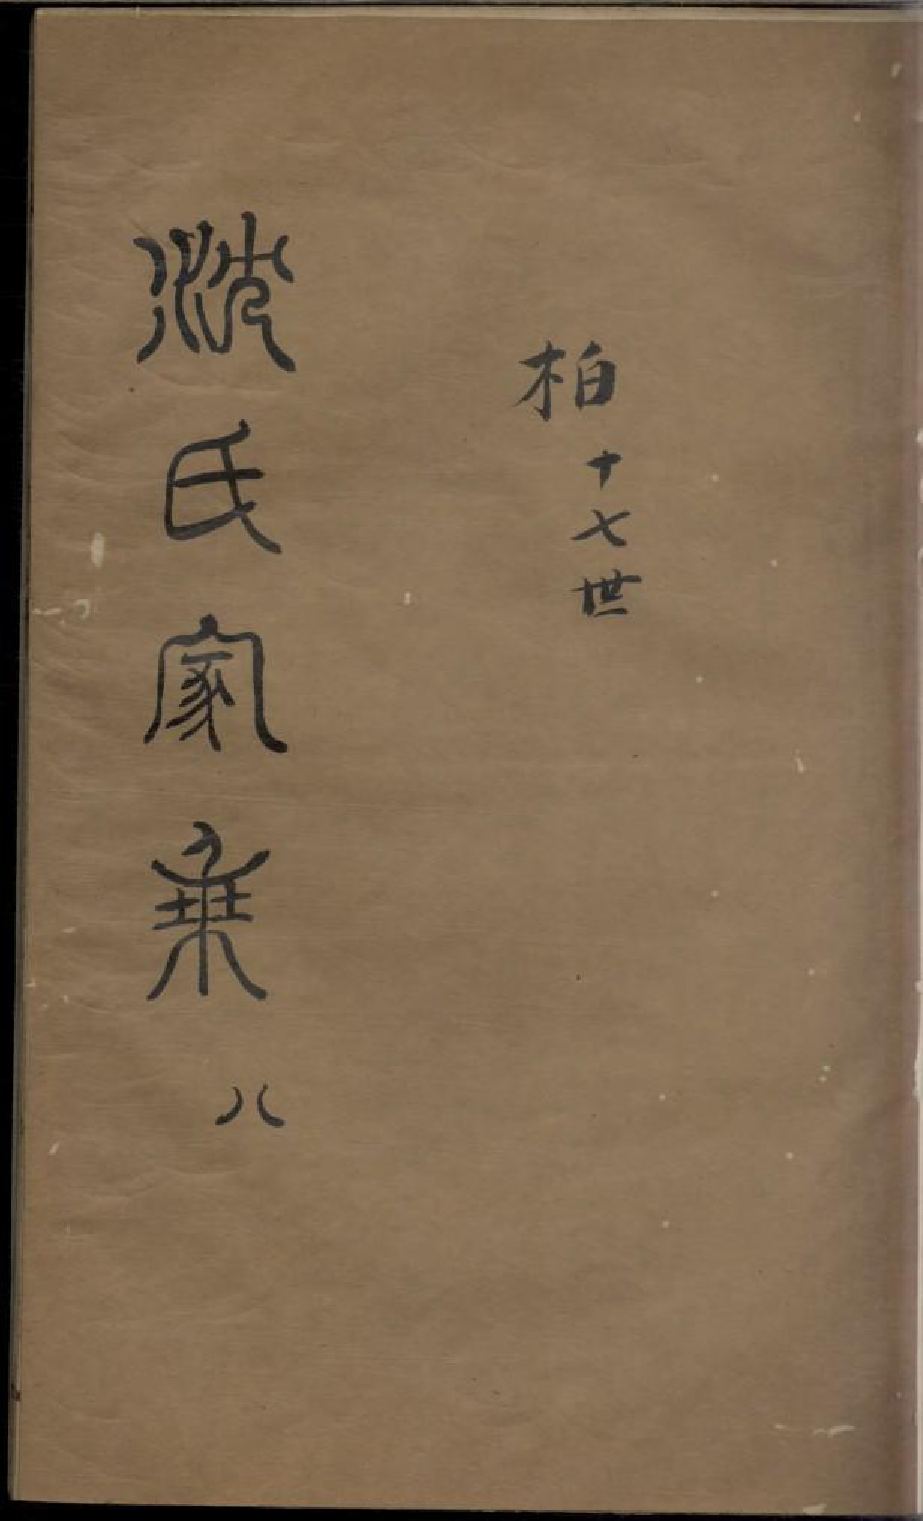 柏
十七世
沈氏家乘 八